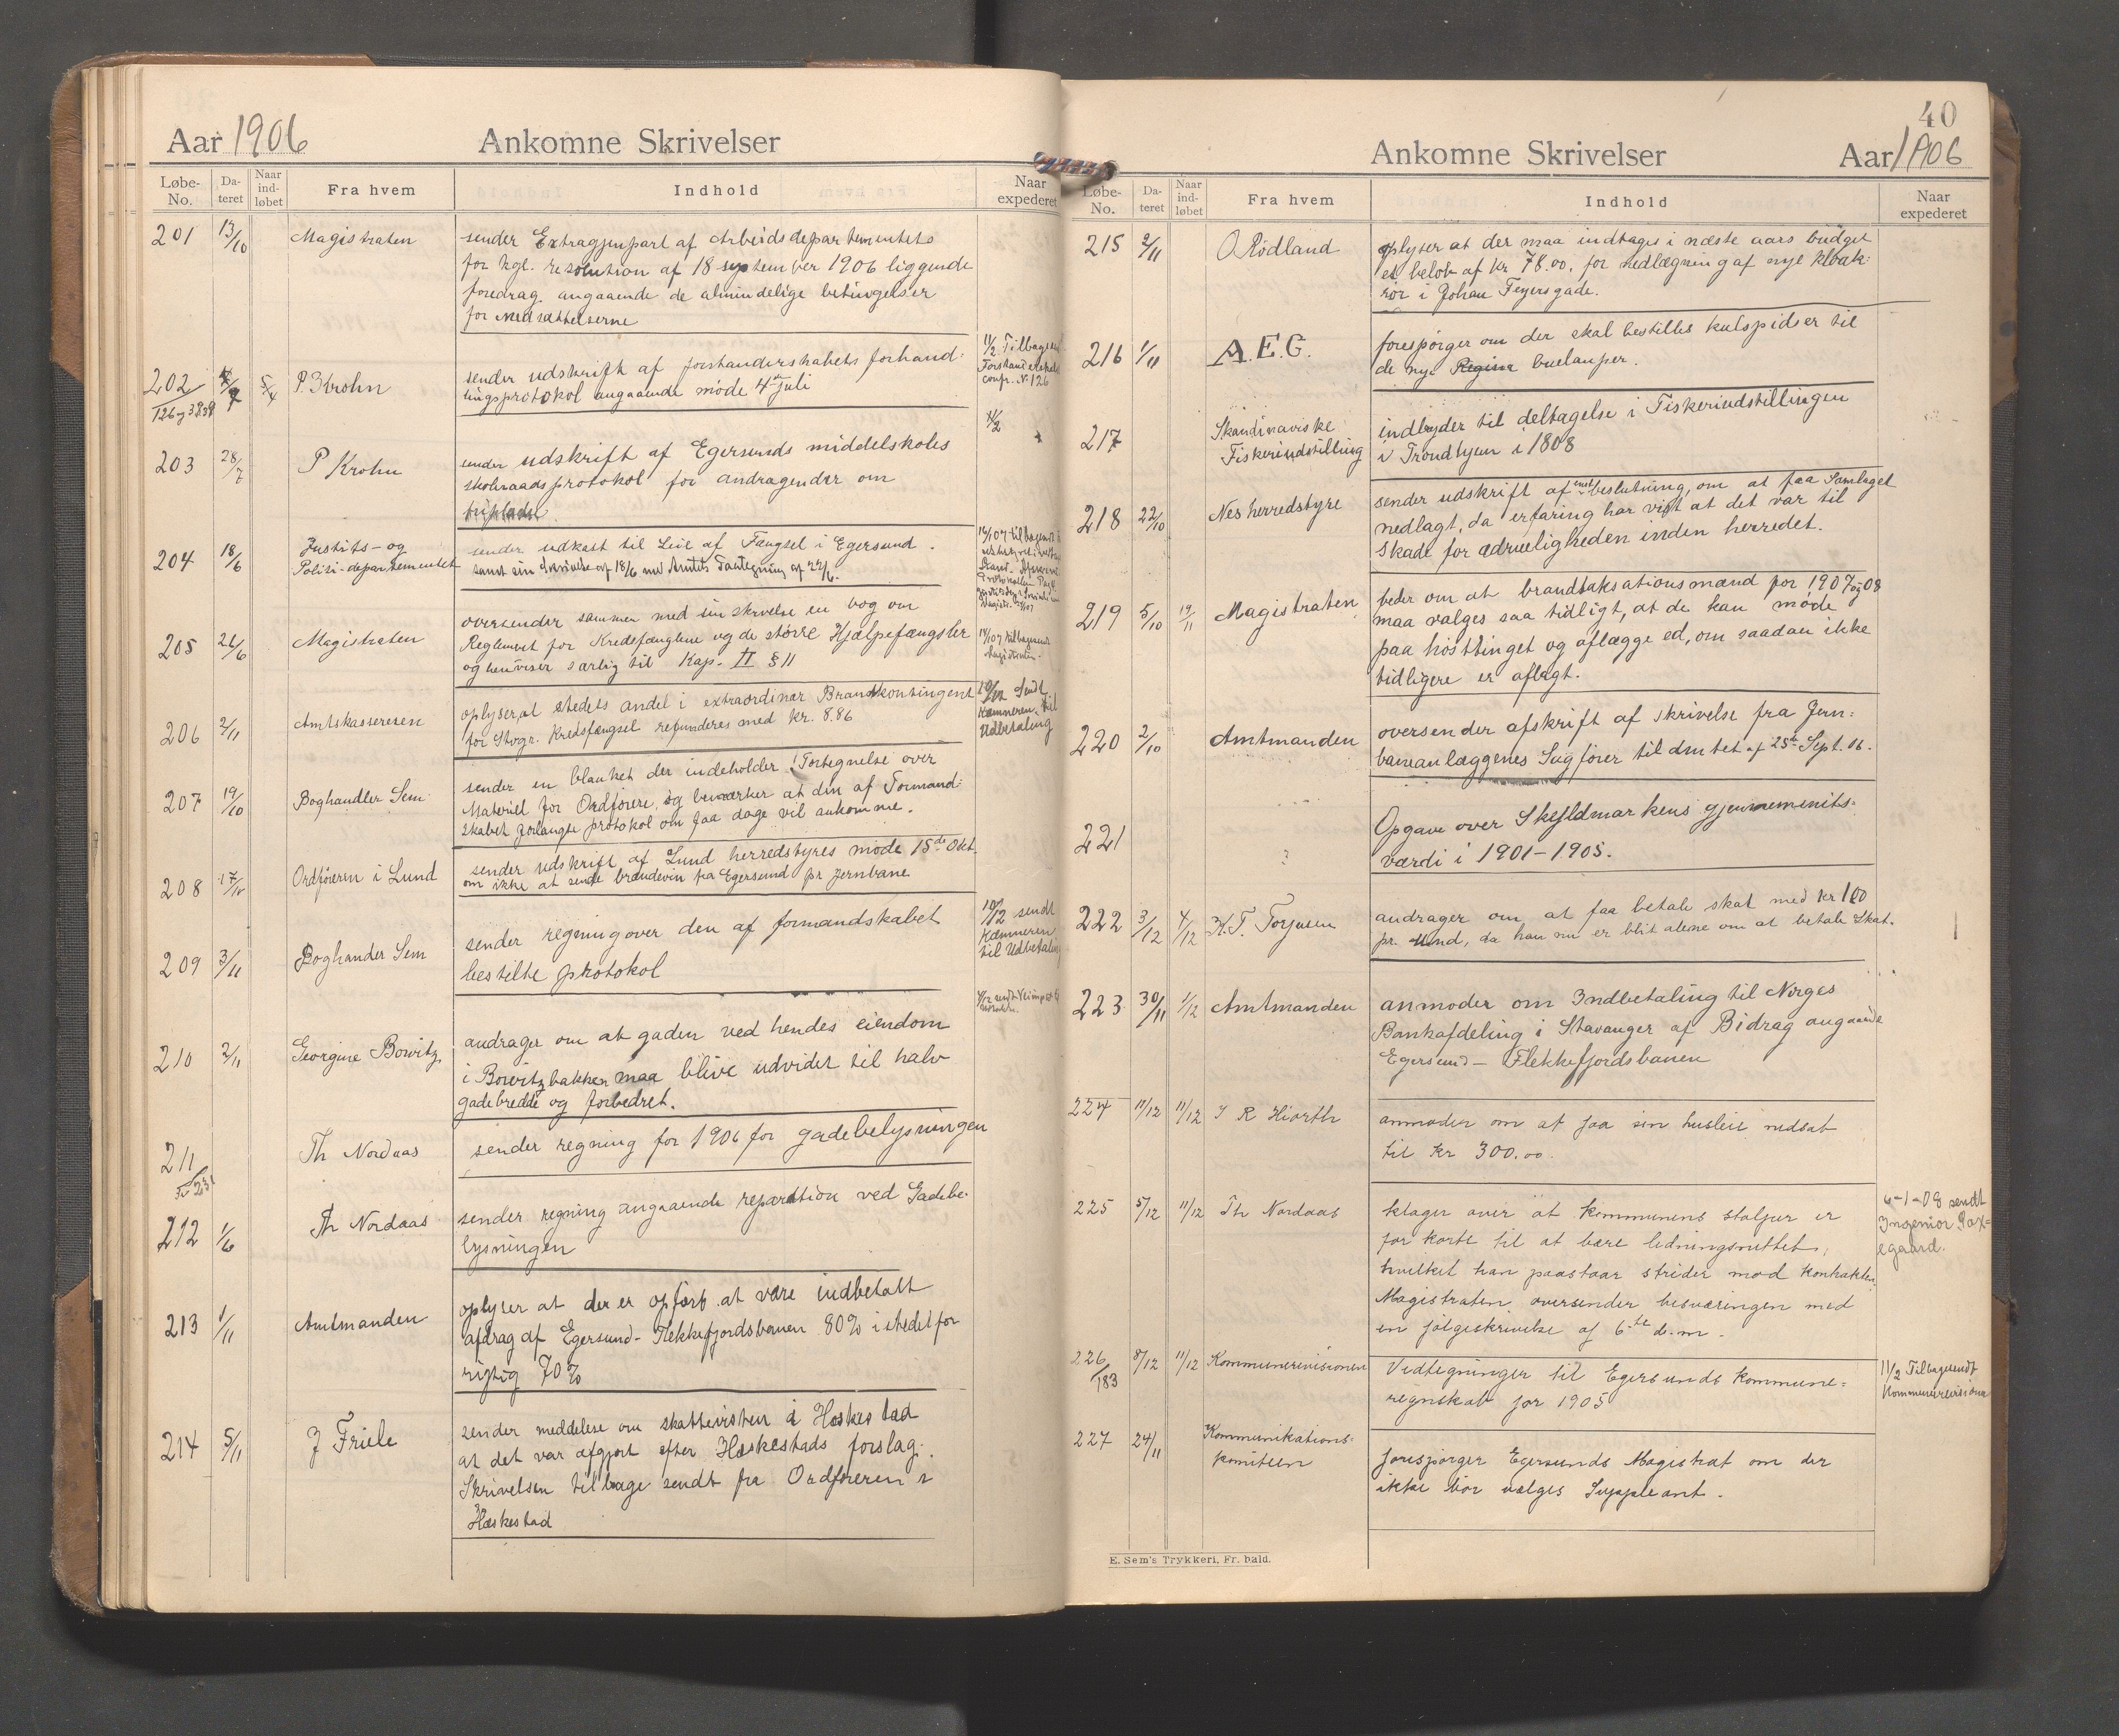 Aar 1906 Ankomne Skrivelser
Løbe-No. Da-teret Naar ind-løbet Fra hvem Indhold Naar expederet
201 13/10 Magistraten sender Extragjenpart af Arbeidsdepartementets
for kgl. resolution af 18 september 1906 liggende
foredrag angaaende de almindelige betingelser
for Nedsættelserne
202 P. Krohn sender udskrift af forstanderskabets forhand-
lingsprotokol angaaende møde 4de juli
11/2 Tilbagesendt
Forstanderskabet
confr. N. 126
203 28/7 P Krohn sender udskrift af Egersunds middelskoles
skoleraads protokol for andragender om
friplads.
204 18/6 Justits- og
Politi-departementet sender udkast til Leie af Fængsel i Egersund.
samt sin skrivelse af 18/6 med Amtets Paategning af 22/6.
205 26/6 Magistraten oversender sammen med sin skrivelse en bog om
Reglement for Kredsfænglene og de større Hjælpefængsler
og henviser særlig til Kap. II § 11
206 2/11 Amtskassereren oplyser at stedets andel i extraordinær Brandkontingent
for Stvgr. Kredsfængsel refunderes med kr. 8.86
10/12 Sendt
Kæmneren til
Udbetaling
207 19/10 Boghandler Sem sender en blanket der indeholder Fortegnelse over
Materiel for Ordførere, og bemærker at den af Formand-
skabet forlangte protokol om faa dage vil ankomme.
208 17/10 Ordføreren i Lund sender udskrift af Lund herredstyres møde 15de Okt.
om ikke at sende brændevin fra Egersund pr jernbane
209 3/11 Boghander Sem sender regning over den af formandskabet
bestilte protokol
10/12 sendt
Kæmneren
til Udbetaling
210 2/11 Georgine Bowitz andrager om at gaden ved hendes eiendom
i Bowitzbakken maa blive udvidet til halv
gadebredde og forbedret.
211 Th Nordaas sender regning for 1906 for gadebelysningen
212 1/6 Th Nordaas sender regning angaaende reparation ved Gadebe-
lysningen
213 1/11 Amtmanden oplyser at der er opført at være indbetalt
afdrag af Egersund-Flekkefjordsbanen 80% istedetfor
rigtig 70%
214 5/11 J Friele sender meddelese om skattevisten i Heskestad
at det var afgjort efter Heskestads forslag.
Skrivelsen tilbage sendt fra Ordføreren i
Heskestad
40
Ankomne Skrivelser Aar 1906
Løbe-No. Da-teret Naar ind-løbet Fra hvem Indhold Naar expederet
215 2/11 O Rødland oplyser at der maa indtages i næste aars budget
et beløb af kr 78.00. for nedlægning af nye kloak-
rør i Johan Feyersgade.
216 1/11 A.E.G. forespørger om der skal bestilles kulspidser til
de nye Regina buelamper.
217 Skandinaviske
Fiskeriudstilling indbyder til deltagelse i Fiskeriudstillingen
i Trondhjem i 1808
218 22/10 Nes herredstyre sender udskrift af beslutning, om at faa Samlaget
nedlagt, da erfaring har vist at det var til
skade for ædrueligheden inden herredet.
219 5/10 19/11 Magistraten beder om at brandtaksationsmænd for 1907 og 08
maa vælges saa tidligt, at de kan møde
paa høsttinget og aflægge ed, om saadan ikke
tidligere er aflagt.
220 2/10 Amtmanden oversender afskrift af skrivelse fra Jern-
baneanlæggenes Sagfører til Amtet af 25de Sept. 06.
221 ? Opgave over Skyldmarkens gjennemsnits-
værdi i 1901-1905.
222 3/12 4/12 K.T. Torjusen andrager om at faa betale skat med kr 100
pr. da han nu er blit alene om at betale Skat.
223 30/11 1/12 Amtmanden anmoder om Indbetaling til Norges
Bankafdeling i Stavanger af Bidrag angaaende
Egersund-Flekkefjordsbanen
224 11/12 11/12 J R Hiorth anmoder om at faa sin husleie nedsat
til kr 300.00.
225 5/12 11/12 Th Nordaas klager over at kommunens stolper er
for korte til at bære ledningsnettet,
hvilket han paastaar strider mod kontrakten.
Magistraten oversender besværingen med
en følgeskrivelse af 6te d.m.
6-1-08 sendt
Ingeniør
226/183 8/12 11/12 Kommunerevisionen Vedtegninger til Egersunds kommune-
regnskab for 1905
11/2 Tilbagesendt
Kommunerevisionen
227 24/11 Kommunikations-
komiteen forespørger Egersunds Magistrat om der
ikke bør vælges Suppleant.
E. Sem's Trykkeri, Fr. hald.